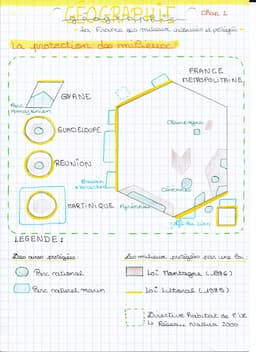 GÉOGRAPHIE
Chap. 1
La France des milieux intenses et protégés
La protection des milieux
FRANCE METROPOLITAINE
GUYANE
Parc Amazonien
GUADELOUPE
REUNION
MARTINIQUE
Cévennes
Pyrénéen
LEGENDE :
Des aires protégées :
Parc national
Parc naturel marin
Des milieux protégés par une loi
Loi Montagne (1986)
Loi Littoral (1985)
Directive habitat de l'UE
Le Réseau Natura 2000